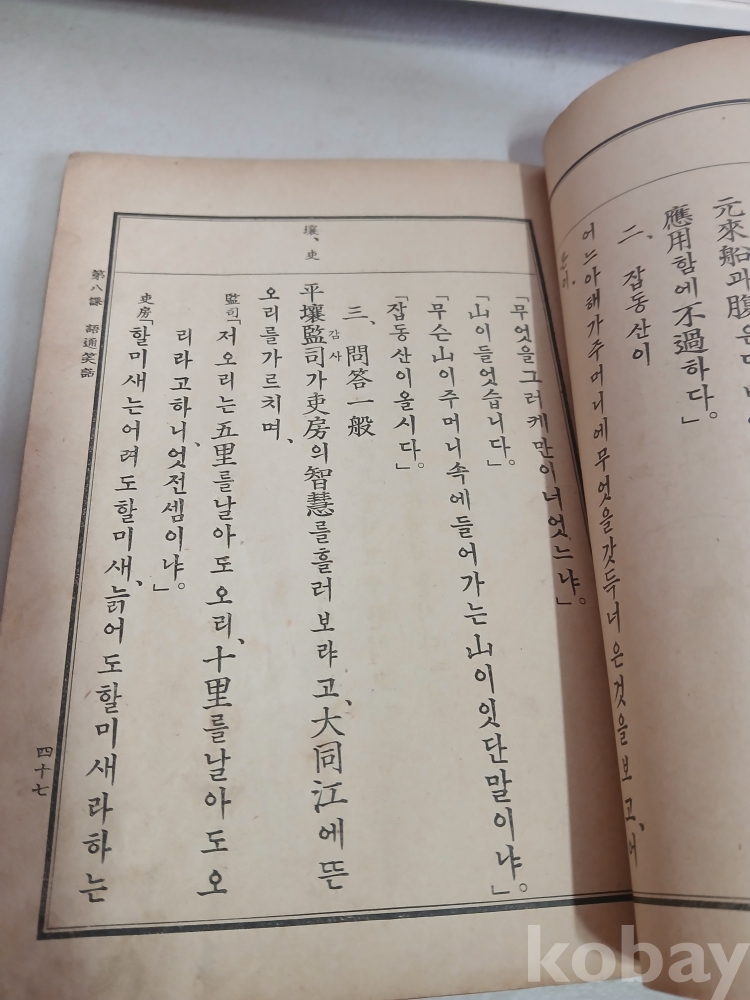 元來船과腹은
應用함에不過하다。」
二、 잡동산이
어느아해가주머니에무엇을갓득너은것을보고、
壤、吏
「무엇을그러케만이너엇느냐。」
「山이들엇습니다。」
「무슨山이주머니속에들어가는山이잇단말이냐。」
「잡동산이올시다。」
三、問答一般
平壤監司가吏房의智慧를흘러보랴고、大同江에뜬
감사
오리를가르치며、
監司「저오리는五里를날아도오리、十里를날아도오
리라고하니、엇전셈이냐。」
吏房「할미새는어려도할미새、늙어도할미새라하는
第八課 語通笑話
四十七
kobay